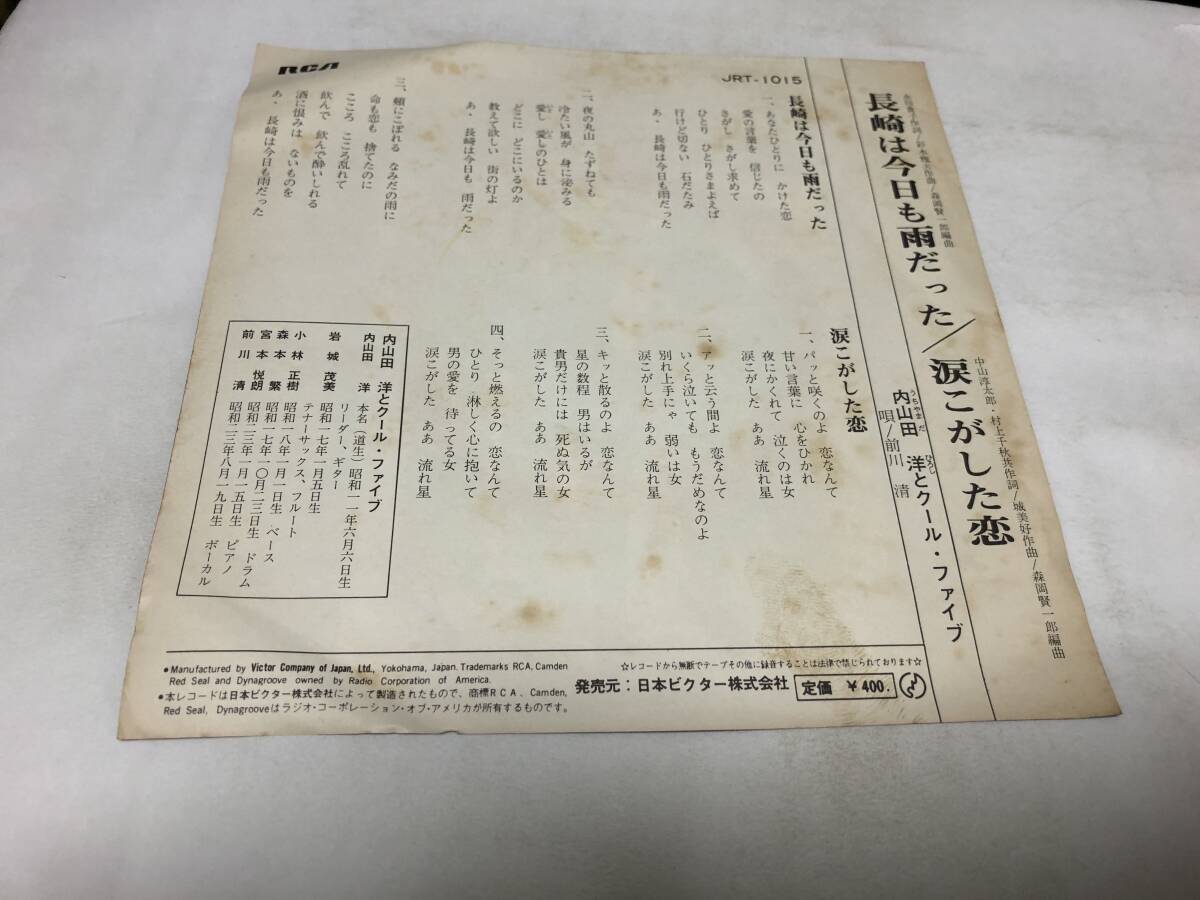 RCA
JRT-1015
永田貴子作詞/彩木雅夫作曲/森岡賢一郎編曲
長崎は今日も雨だった/涙こがした恋
中山淳太郎・村上千秋共作詞/城美好作曲/森岡賢一郎編曲
内山田 洋とクール・ファイブ
うちやまだ ひろし
唄/前川 清
長崎は今日も雨だった
一、あなたひとりに かけた恋
愛の言葉を 信じたの
さがし さがし求めて
ひとり ひとりさまよえば
行けど切ない 石だたみ
あゝ 長崎は今日も雨だった
二、夜の丸山 たずねても
冷たい風が 身に泌みる
愛し 愛しのひとは
どこに どこにいるのか
教えて欲しい 街の灯よ
あゝ 長崎は今日も 雨だった
三、頬にこぼれる なみだの雨に
命も恋も 捨てたのに
こころ こころ乱れて
飲んで 飲んで酔いしれる
酒に恨みは ないものを
あゝ 長崎は今日も雨だった
涙こがした恋
一、パッと咲くのよ 恋なんて
甘い言葉に 心をひかれ
夜にかくれて 泣くのは女
涙こがした ああ 流れ星
二、アッと云う間よ 恋なんて
いくら泣いても もうだめなのよ
別れ上手にゃ 弱いは女
涙こがした ああ 流れ星
三、キッと散るのよ 恋なんて
星の数程 男はいるが
貴男だけには 死ぬ気の女
涙こがした ああ 流れ星
四、そっと燃えるの 恋なんて
ひとり 淋しく心に抱いて
男の愛を 待ってる女
涙こがした ああ 流れ星
内山田 洋とクール・ファイブ
内山田 洋 本名(道生)昭和一一年六月六日生
リーダー、ギター
岩城 茂美 昭和一七年一月五日生
テナーサックス、フルート
小林 正樹 昭和一八年一月一日生 ベース
森本 繁 昭和一七年一〇月二三日生 ドラム
宮本 悦朗 昭和二三年一月一五日生 ピアノ
前川 清 昭和二三年八月一九日生 ボーカル
●Manufactured by Victor Company of Japan, Ltd., Yokohama, Japan. Trademarks RCA, Camden
Red Seal and Dynagroove owned by Radio Corporation of America.
●本レコードは日本ビクター株式会社によって製造されたもので、商標RCA、Camden,
Red Seal, Dynagrooveはラジオ・コーポレーション・オブ・アメリカが所有するものです。
☆レコードから無断でテープその他に録音することは法律で禁じられております☆
発売元:日本ビクター株式会社 定価 ¥400.